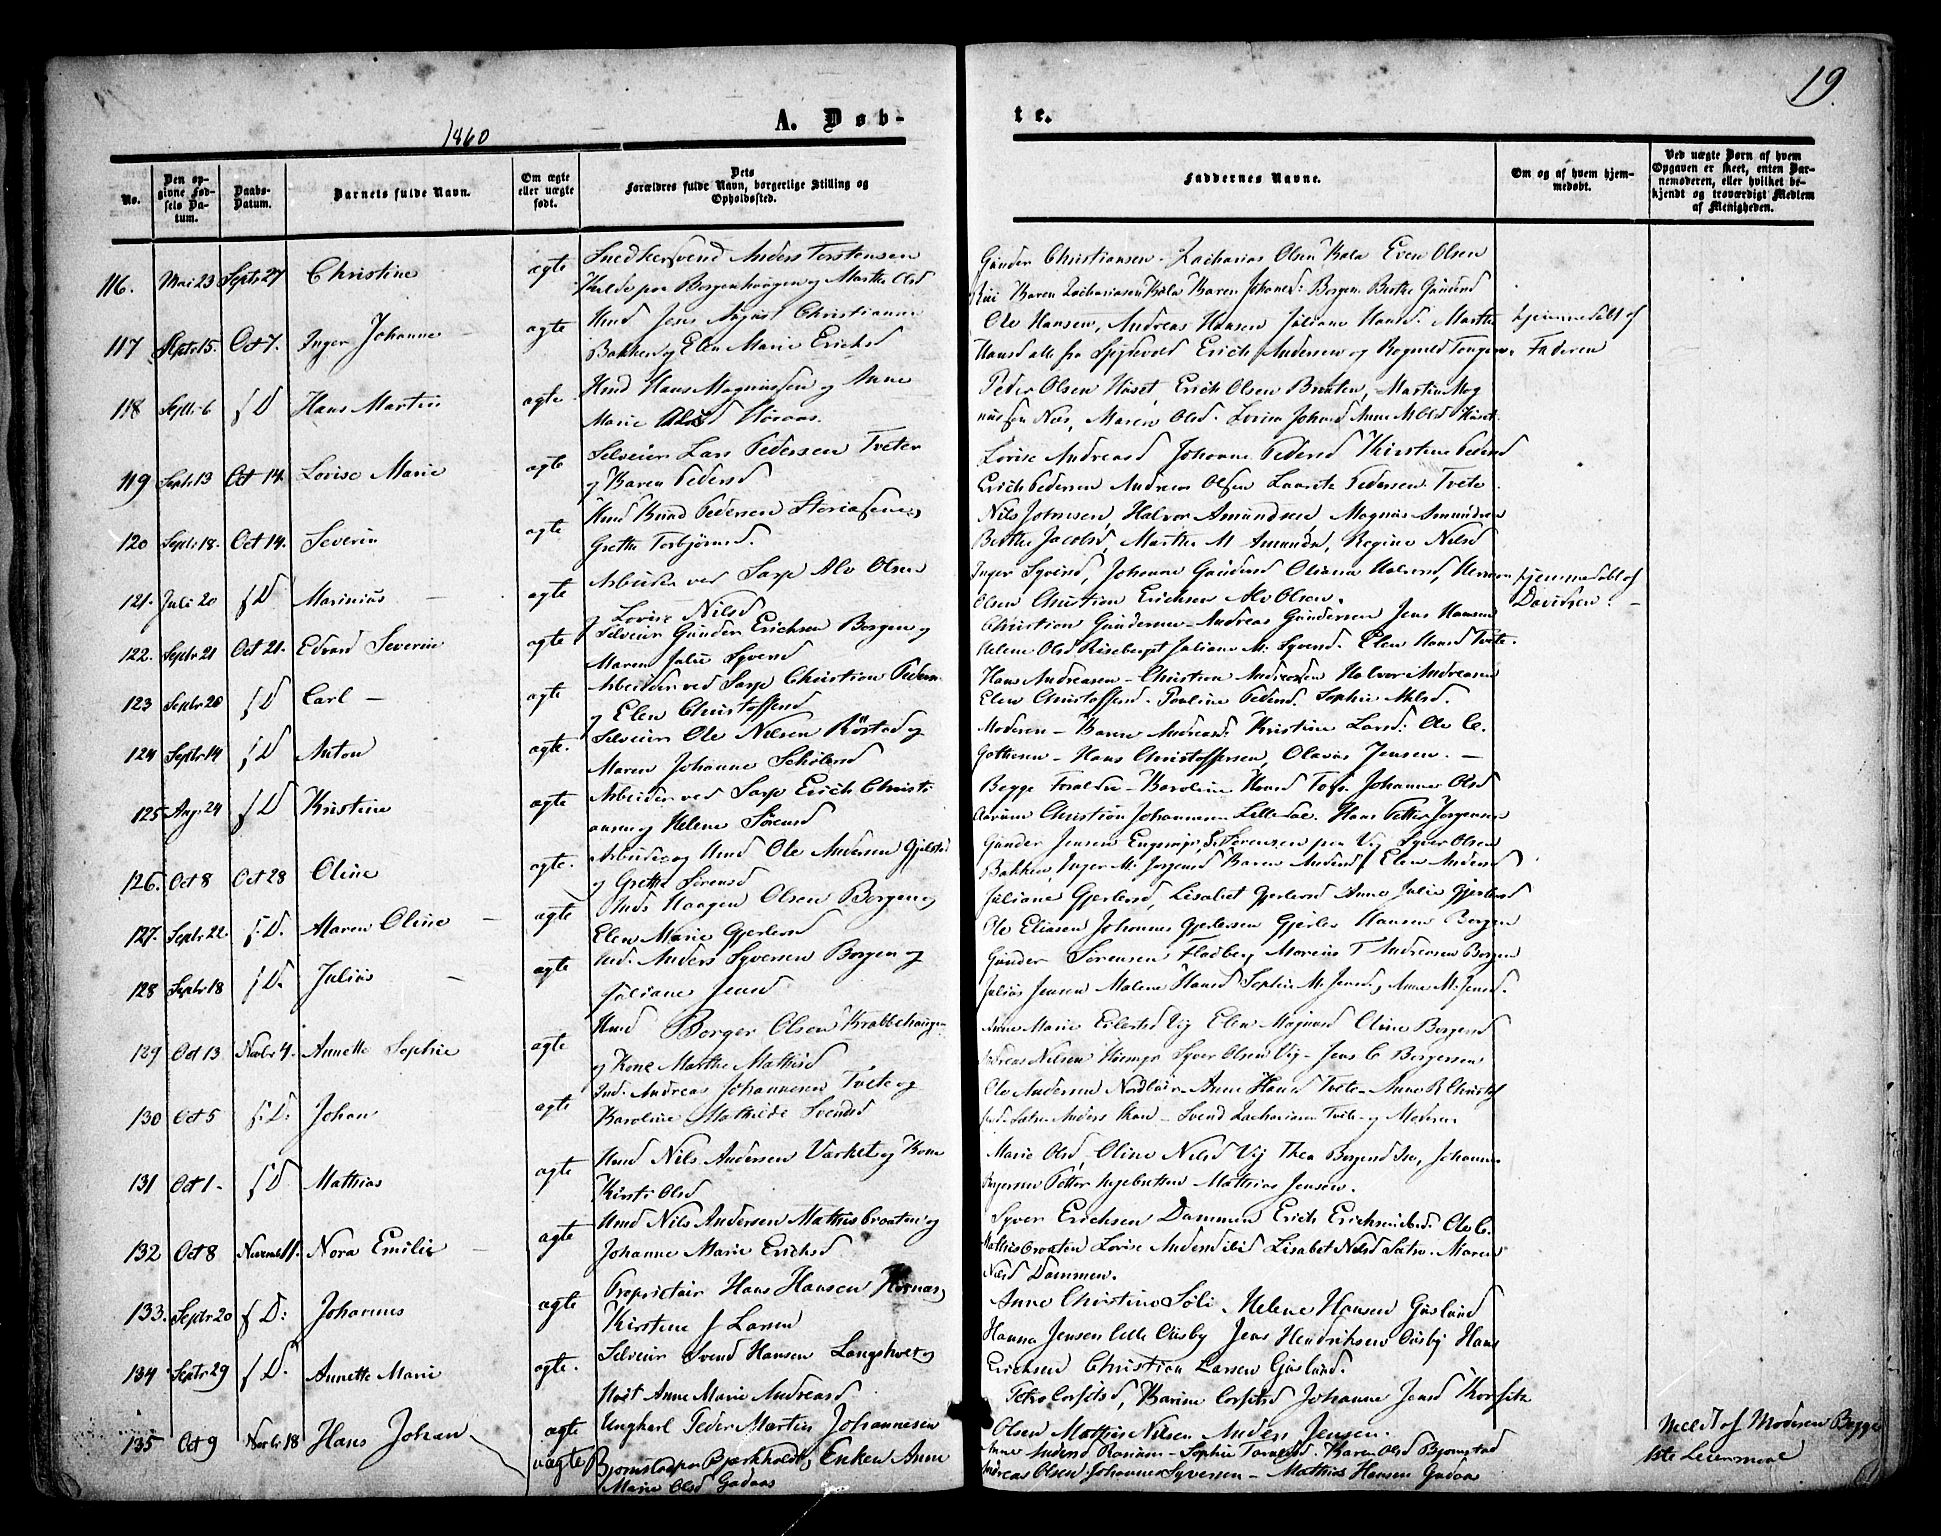 19.
1860
A. Døb-
te.
No.
Den opgivne Fødsels Datum.
Daabs-Datum.
Barnets fulde Navn.
Om ægte eller uægte født.
Dets Forældres fulde Navn, borgerlige Stilling og Opholdssted.
Faddernes Navne.
Om og af hvem hjemmedøbt.
Ved uægte Børn af hvem Opgaven er skeet, enten Barnemoderen, eller hvilket bekjendt og troværdigt Medlem af Menigheden.
116. Mai 23 Septr 27 Christine ægte Snedkersvend Anders Torstensen
Borgenhaugen og Marthe Olsd
Gunder Christiansen - Zacharias Olsen Kala Even Olsen
Karen Zachariasen Kala Karen Johansd: Borgen Berthe Gundersd
117 Septr 15. Oct 7. Inger Johanne ægte Hmd Jens August Christiansen
Bakken og Elen Marie Erichsd
Ole Hansen, Andreas Hansen Juliane Hansd. Marthe
Hansd alle fra Spydevold Erich Andersen og Ragnild Torgersen
hjemmedøbt af
Faderen
118 Septr 6 f D Hans Martin ægte. Hmd Hans Magnussen og Anne
Marie Olsd
Peder Olsen Haset, Erich Olsen Braten, Martin Mag
nussen Næs, Maren Olsd. Lovise Johansd Anne M Olsd Haset
119 Septr 13 Oct 14. Lovise Marie ægte Selveier Lars Pedersen Tveter
og Karen Pedersd
Lovise Andreasd Johanne Pedersd Kirstine Pedersd
Erich Pedersen Andreas Olsen Laurits Pedersen Tvete.
120 Septr 18. Oct 14. Severin ægte Hmd Knud Pedersen
Grethe Torbjørnsd.
Nils Johnsen, Halvor Amundsen, Magnus Amundsen
Berthe Jacobsd, Marthe M Amundsd, Regine Nilsd
121. Juli 20 f D Marinius - ægte Arbeider ved Sarp Alv Olsen
og Lovise Nilsd
Inger Syversd, Johanne Gundersd Oliana Halvorsd, Herman
Olsen Christian Erichsen Alv Olsen.
hjemmedøbt af
Davidsen. -
122. Septr 21 Oct 21. Edvard Severin ægte Selveier Gunder Erichsen Borgen og
Maren Julie Syversd
Christian Gundersen - Andreas Gundersen Jens Hansen
Helene Olsd Riseberget Juliane M. Syversd. Elen Hansd Tvete.
123 Septr 20 f D Carl - ægte Arbeider ved Sarp Christian Pedersen
og Elen Christoffersd
Hans Andreasen - Christian Andreasen Halvor Andreasen
Elen Christoffersd. Pauline Pedersd. Sophie Nilsd.
124 Septr 14 f D Anton ægte. Selveier Ole Nilsen Røstad og
Maren Johanne
Moderen - Karen Andreasd: Kristine Larsd: Ole C.
Gathesen - Hans Christoffersen, Olavus Jensen. -
125 Aug 24 f D Kristine ægte Arbeider ved Sarp Erich Christi
ansen og Helene Sørensd
Begge Foraldre - Karoline Hansd Johanne Olsd
Aarum Christian Johannesen Lilletoe. Hans Petter Jørgensen
126. Oct 8 Oct 28 Oline ægte. Arbeider og Hmd Ole Andersen Gjelsted
og Grethe Sørensd
Gunder Jensen Sørensen paa Vig Syver Olsen
Bakken, Inger M. Jørgensd Karen Andersd Elen Andersd
127. Septr 22 f. D. Maren Oline - ægte Hmd Haagen Olsen Borgen og
Elen Marie Gjerlovsd
Juliane Gjerlovsd, Lisabet Gjerlovsd Anne Julie Gjerlovsd
Ole Eliasen Johannes Gjerlevsen Gjerlov Hansen Borgen
128 Septr 18 f D. Julius - ægte Hmd: Anders Syversen Borgen og
Juliane Jensd
Gunder Sørensen Fladberg Marius T Andreasen Borgen
Julius Jensen Malene Hansd Sophie M. Jensd, Anne M. Jensd.
129 Oct 13 Novbr 4. Annette Sophie ægte Hmd Borger Olsen Krabbehaugen
og Kone Marthe Mathisd
Anne Marie Vig Elen Magnusd Oline Borgersd
Andreas Nilsen Syver Olsen Vig - Jens C Borgersen
130 Oct 5 f: D: Johan ægte Ind. Andreas Johannesen Tvete og
Karoline Mathilde Svendsd
Ole Andersen Anne Hansd Tvete - Anne K Christof
Anders Svend Zachariasen Tvete og Moderen
131 Oct 1 - f D Mathias ægte Hmd Nils Andersen Varket og Kone
Kirsti Olsd
Marie Olsd - Oline Nilsd Vig Thea Borgersd Johanne
Borgersen Petter Mathias Jensen.
132 Oct 8 Novembr 11. Nora Emilie - ægte Hmd Nils Andersen Mathisbraaten og
Johanne Marie Erichsd
Syver Erichsen Dammen Erich Erichsen Ole C.
Mathisbraaten Lovise Andersd Lisabet Nilsd Maren
Nilsd Dammen.
133. Septr 20 f D: Johannes ægte Proprietair Hans Hansen Hornæs
Kirstine J Larsen
Anne Christine Soli - Helene Hansen Gusland
Hanna Jensen Lille Ousby Jens Hendriksen Ousby Hans
Erichsen Christian Larsen Gusland.
134 Septr 29 f D. Annette Marie ægte. Selveier Svend Hansen Langsholt og
Anne Marie Andreasd
Johanne Jensd
Olsen Mathis Nilsen Anders Jensen.
135 Oct 9 Novbr 18 Hans Johan ægte
uægte Ungkarl Peder Martin Johannesen
Bjørnstad paa Bjerkholdt, Enken Anne
Marie Olsd Gadaas
Anne Andersd Sophie Karen Olsd Bjørnstad
Andreas Olsen Johannes Syversen - Mathis Hansen Gadaas
Meldt af Moderen Begges
1ste Leiermaal